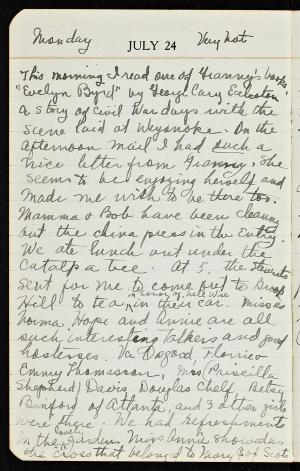 Monday
Very hot
JULY 24
This morning I read one of Granny's books,
"Evelyn Byrd" by George Cary Eggleston
a story of Civil War days with the
scene laid at Weyanoke. In the
afternoon mail I had such a
nice letter from Granny. She
seems to be enjoying herself and
made me wish to be there too.
Mamma & Bob have been cleaning
out the china press in the Entry.
We ate lunch out under the
Catalpa tree. At 5, the Stewarts
sent for me to come out to Brook
Hill to tea in honor of Nell Wise in their car. Misses
Norma, Hope and Annie are all
such interesting talkers and good
hostesses. Va Osgood, Florrico
Emmy Thomasson, Mrs (Priscilla
Shepherd) Davis Douglas Chelf Betsy
Binford of Atlanta, and 3 other girls
were there. We had refreshments
in the lovely garden. Miss Annie showed us
the cross that belonged to Mary Q of Scots